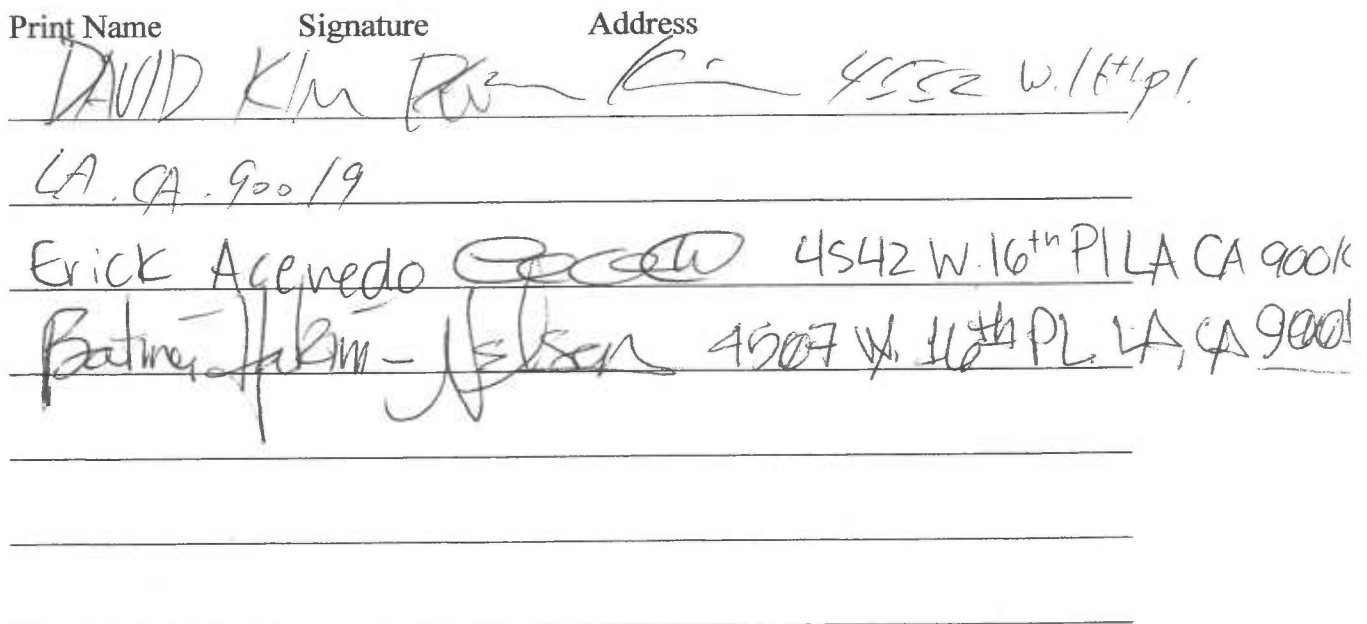 Print Name Signature Address
DAVID KIM 4552 W. 16th pl.
LA. CA. 90019
Erick Acevedo 4542 W. 16th Pl LA CA 900
Hakim-Nelson 4507 W. 16th PL. LA, CA 900